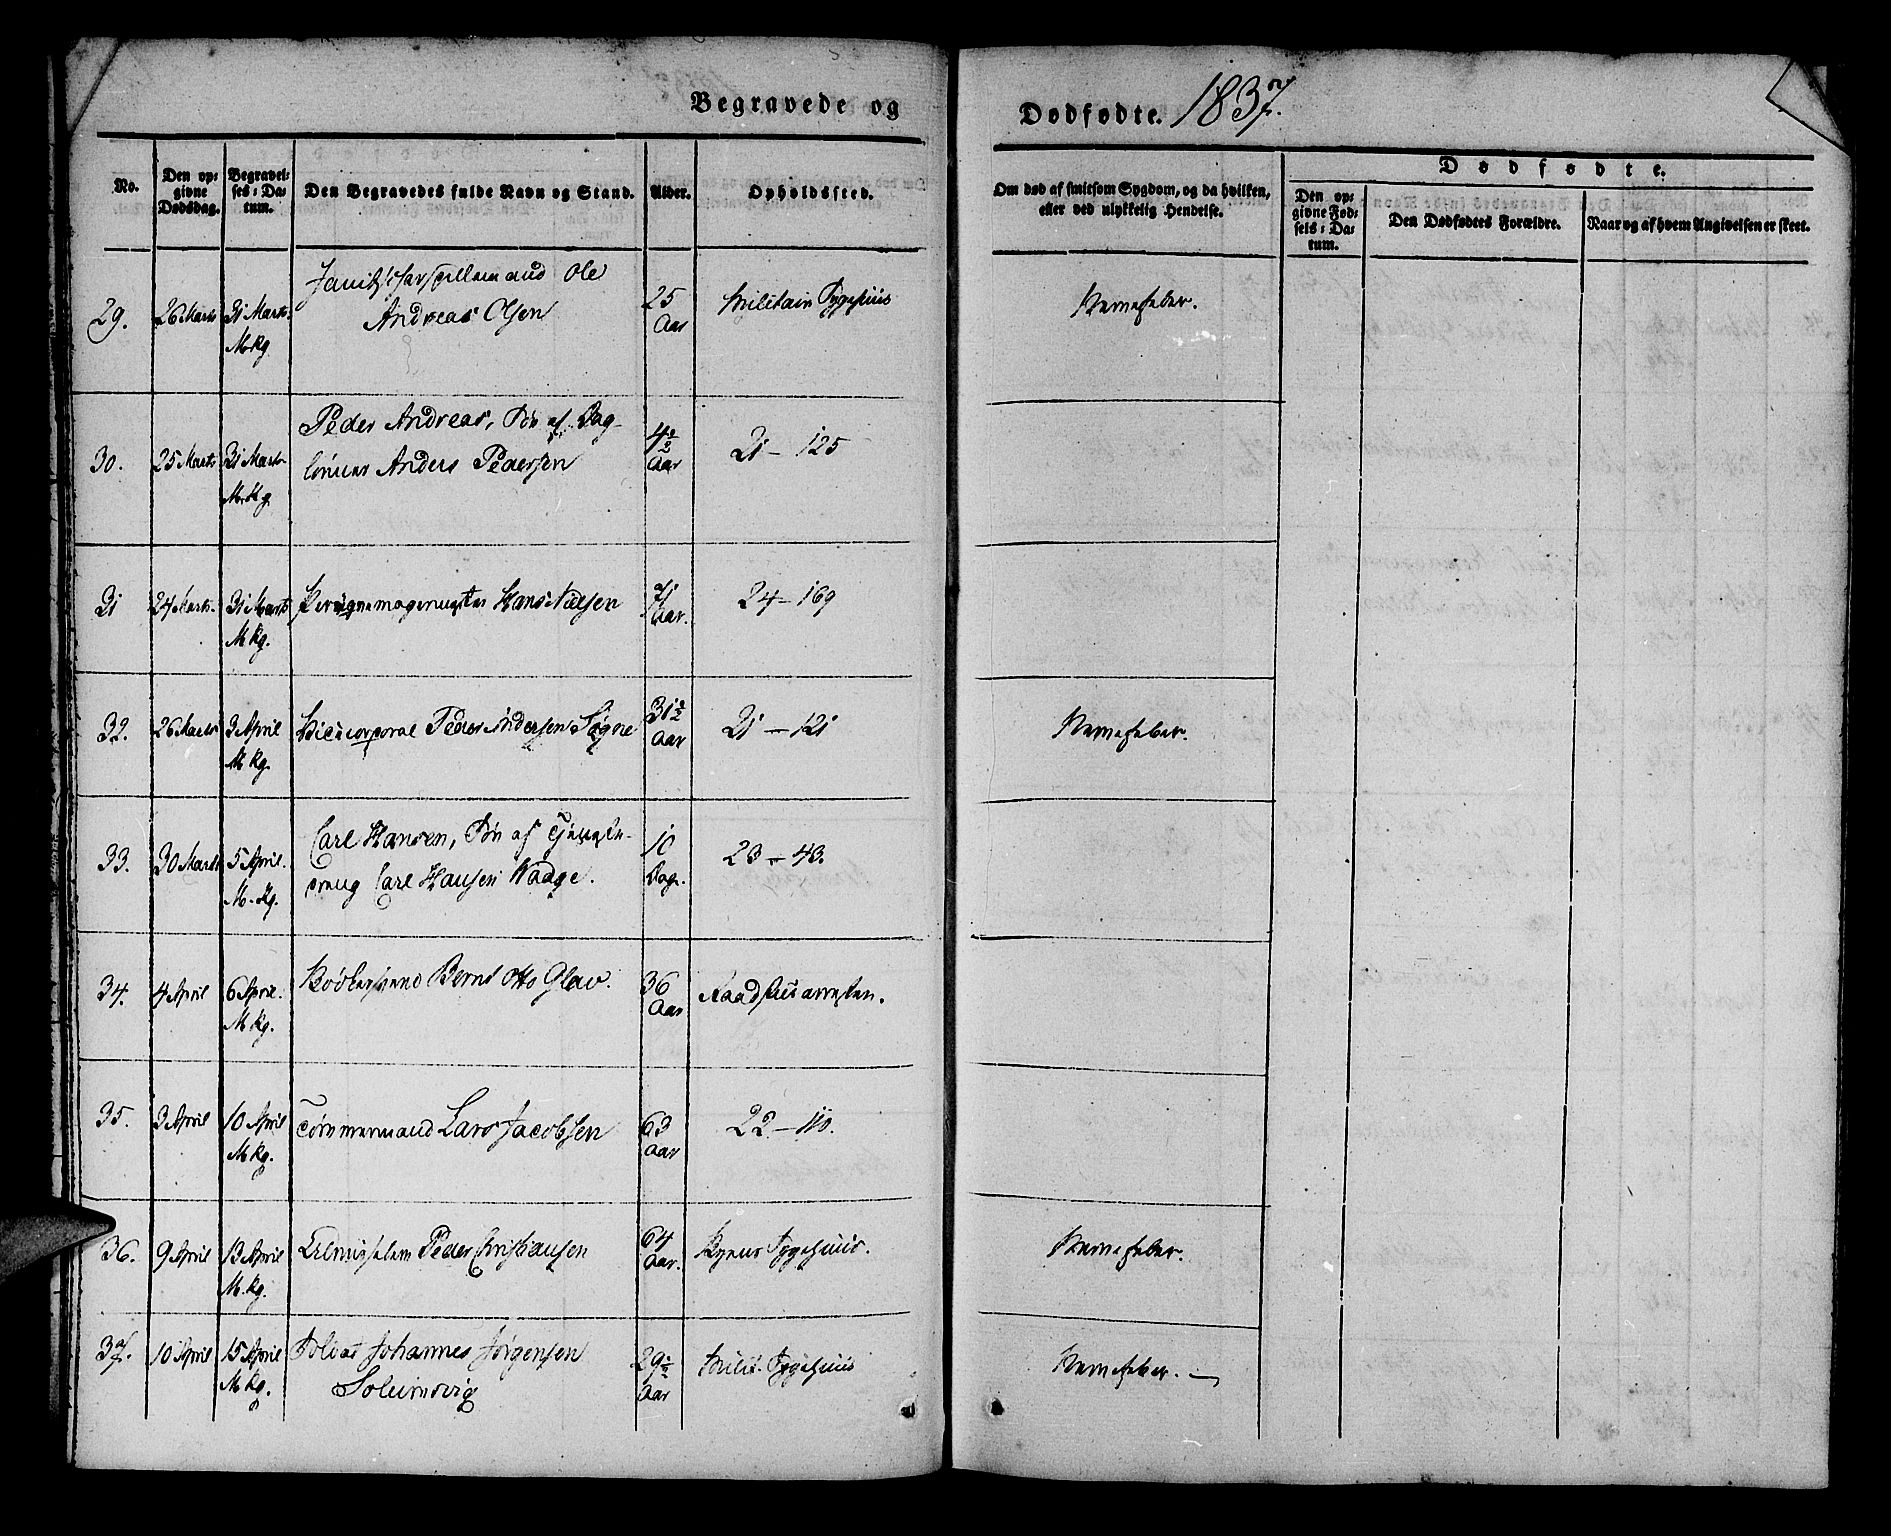 Begravede og
Dødfødte. 1837.
No.
Den op-
givne
Dødsdag.
Begravel-
ses-Da-
tum.
Den Begravedes fulde Navn og Stand.
Alder.
Opholdssted.
Om død af smitsom Sygdom, og da hvilken,
eller ved ulykkelig Hendelse.
Dødfødte.
Den op-
givne Fød-
sels-Da-
tum.
Den Dødfødtes Forældre.
Naar og af hvem Angivelsen er skeet.
29. 26 Marts 31 Marts. Ole 25 Militair Sygehuus Nervefeber.
Andreas Olsen Aar
M. Kg
30. 25 Marts 31 Marts Peder Andreas, Søn af Dag- 4½ 21 - 125
lønner Anders Pedersen Aar
M. Kg.
31 24 Marts. 31 Marts Hans Nielsen 71 24 - 169
M Kg. Aar.
32. 26 Marts 3 April Vicecorporal Peder Andersen Søgne 31½ 21 - 121 Nervefeber.
M Kg. Aar
33. 30 Marts 5 April. Carl Hansen, Søn af Tjeneste- 10 23 - 43.
M. Kg. dreng Carl Hansen Waage. Dage.
34. 4 April 6 April. Bødkersvend Bernt Otto Glav. 36 Raadhuusarresten.
M Kg. Aar
35. 3 April 10 April Tømmermand Lars Jacobsen 63 22 - 110.
M Kg. Aar
36. 9 April 13 April Lem Peder Christiansen 64 Sygehuus. Nervefeber.
M. Kg. Aar.
37. 10 April 15 April Soldat Johannes Jørgensen 29½ Milit. Sygehuus Nervefeber. —
M Kg. Soleimsvig Aar